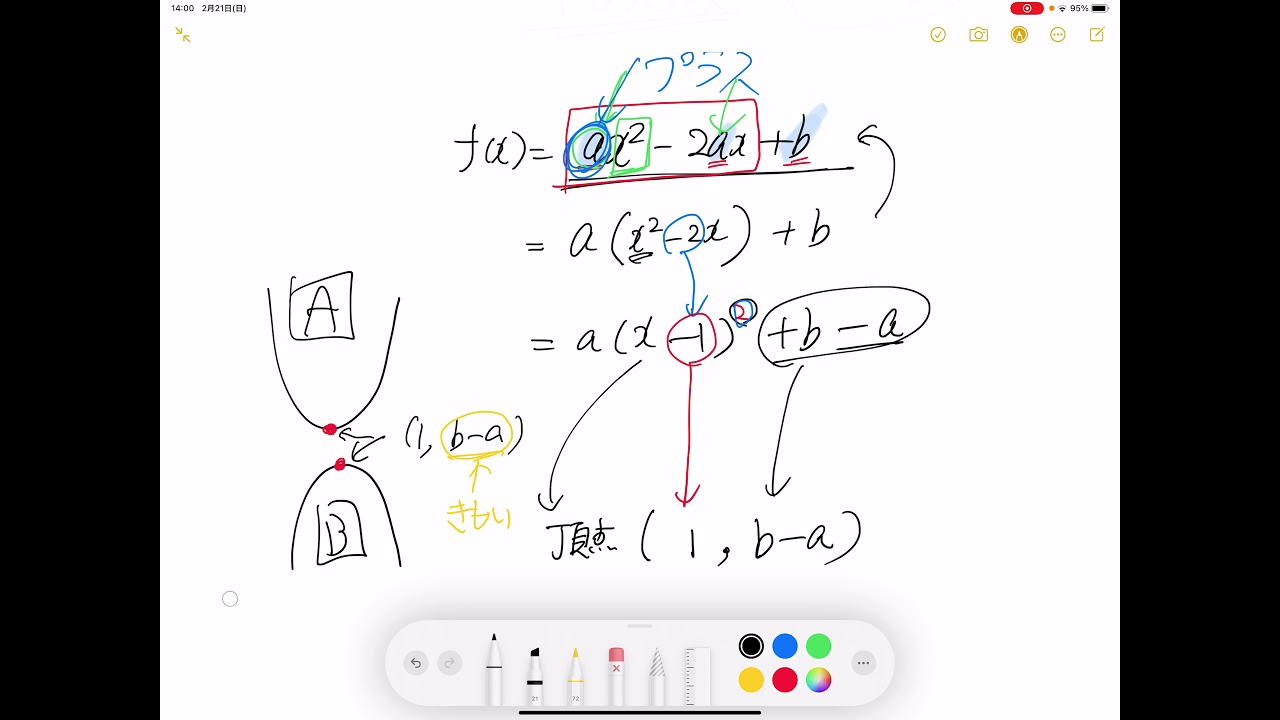 14:00 2月21日(日)
95%
プラス
f(x)= ax² - 2ax + b
= a(x² - 2x) + b
= a(x - 1)² + b - a
A
(1, b-a)
きもい
B
頂点 (1, b-a)
21
72